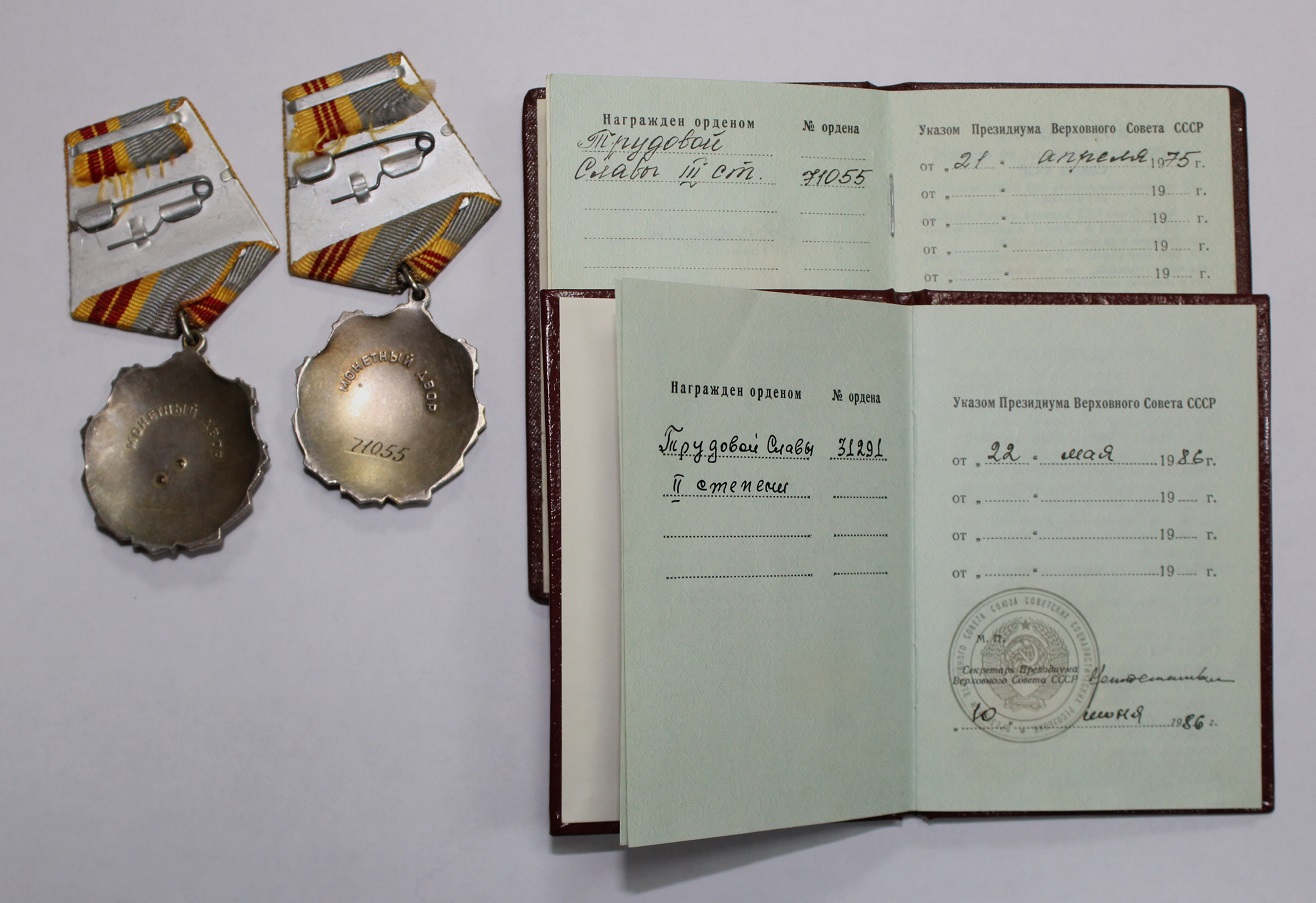 МОНЕТНЫЙ ДВОР
МОНЕТНЫЙ ДВОР
71055
Награжден орденом № ордена
Трудовой
Славы III ст. 71055
Указом Президиума Верховного Совета СССР
от „21“ апреля 1975 г.
от „ “ 19 г.
от „ “ 19 г.
от „ “ 19 г.
от „ “ 19 г.
Награжден орденом № ордена
Трудовой Славы 31291
II степени
Указом Президиума Верховного Совета СССР
от „22“ мая 1986 г.
от „ “ 19 г.
от „ “ 19 г.
от „ “ 19 г.
М. П.
Секретарь Президиума
Верховного Совета СССР
„10“ июня 1986 г.
СОВЕТА СОЮЗА СОВЕТСКИХ СОЦИАЛИСТИЧЕСКИХ